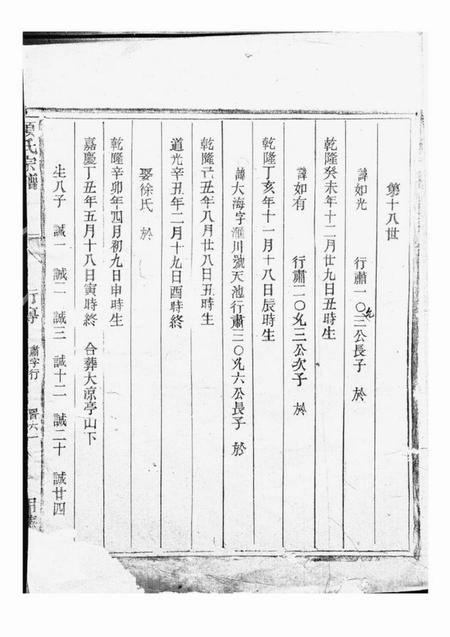 第十八世
諱如光 行肅一〇三公長子 於
九
乾隆癸未年十二月廿九日丑時生
諱如有 行肅二〇九三公次子 於
乾隆丁亥年十一月十八日辰時生
諱大海字滙川號天池行肅二〇九六公長子 於
乾隆己丑年八月廿八日丑時生
道光辛丑年二月十九日酉時終
娶徐氏 於
乾隆辛卯年四月初九日申時生
嘉慶丁丑年五月十八日寅時終 合葬大涼亭山下
生八子 誠一 誠二 誠三 誠十二 誠二十 誠廿四
氏宗譜 肅字行